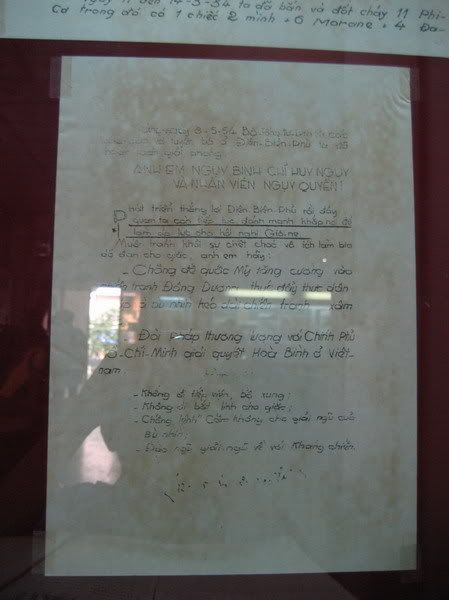 14-3-54 ta đã bắn và đốt cháy 11 Phi-
Cơ trong đó có 1 chiếc 2 mình + 6 Morane + 4 Đa-
8-5-54 Bộ
Điện-Biên-Phủ
ANH EM NGỤY BINH CHỈ HUY NGỤY
VÀ NHÂN VIÊN NGỤY QUYỀN!
Phát triển thắng lợi Điện-Biên-Phủ rồi đây
quân ta còn tiếp tục đánh mạnh khắp nơi để
làm áp lực cho hội nghị Giơ-ne
Muốn tránh khỏi sự chết chóc vô ích làm bia
đỡ đạn cho giặc, anh em hãy:
- Chống đế quốc Mỹ tăng cường vào
chiến tranh Đông Dương, thúc đẩy thực dân
bù nhìn kéo dài chiến tranh xâm
- Đòi Pháp thương lượng với Chính Phủ
Hồ-Chí-Minh giải quyết Hoà Bình ở Việt-
nam
- Không đi tiếp viện, bổ xung;
- Không đi bắt lính cho giặc;
- Chống "lệnh" Cấm không cho giải ngũ của
Bù nhìn;
- Đào ngũ giải ngũ về với Kháng chiến.